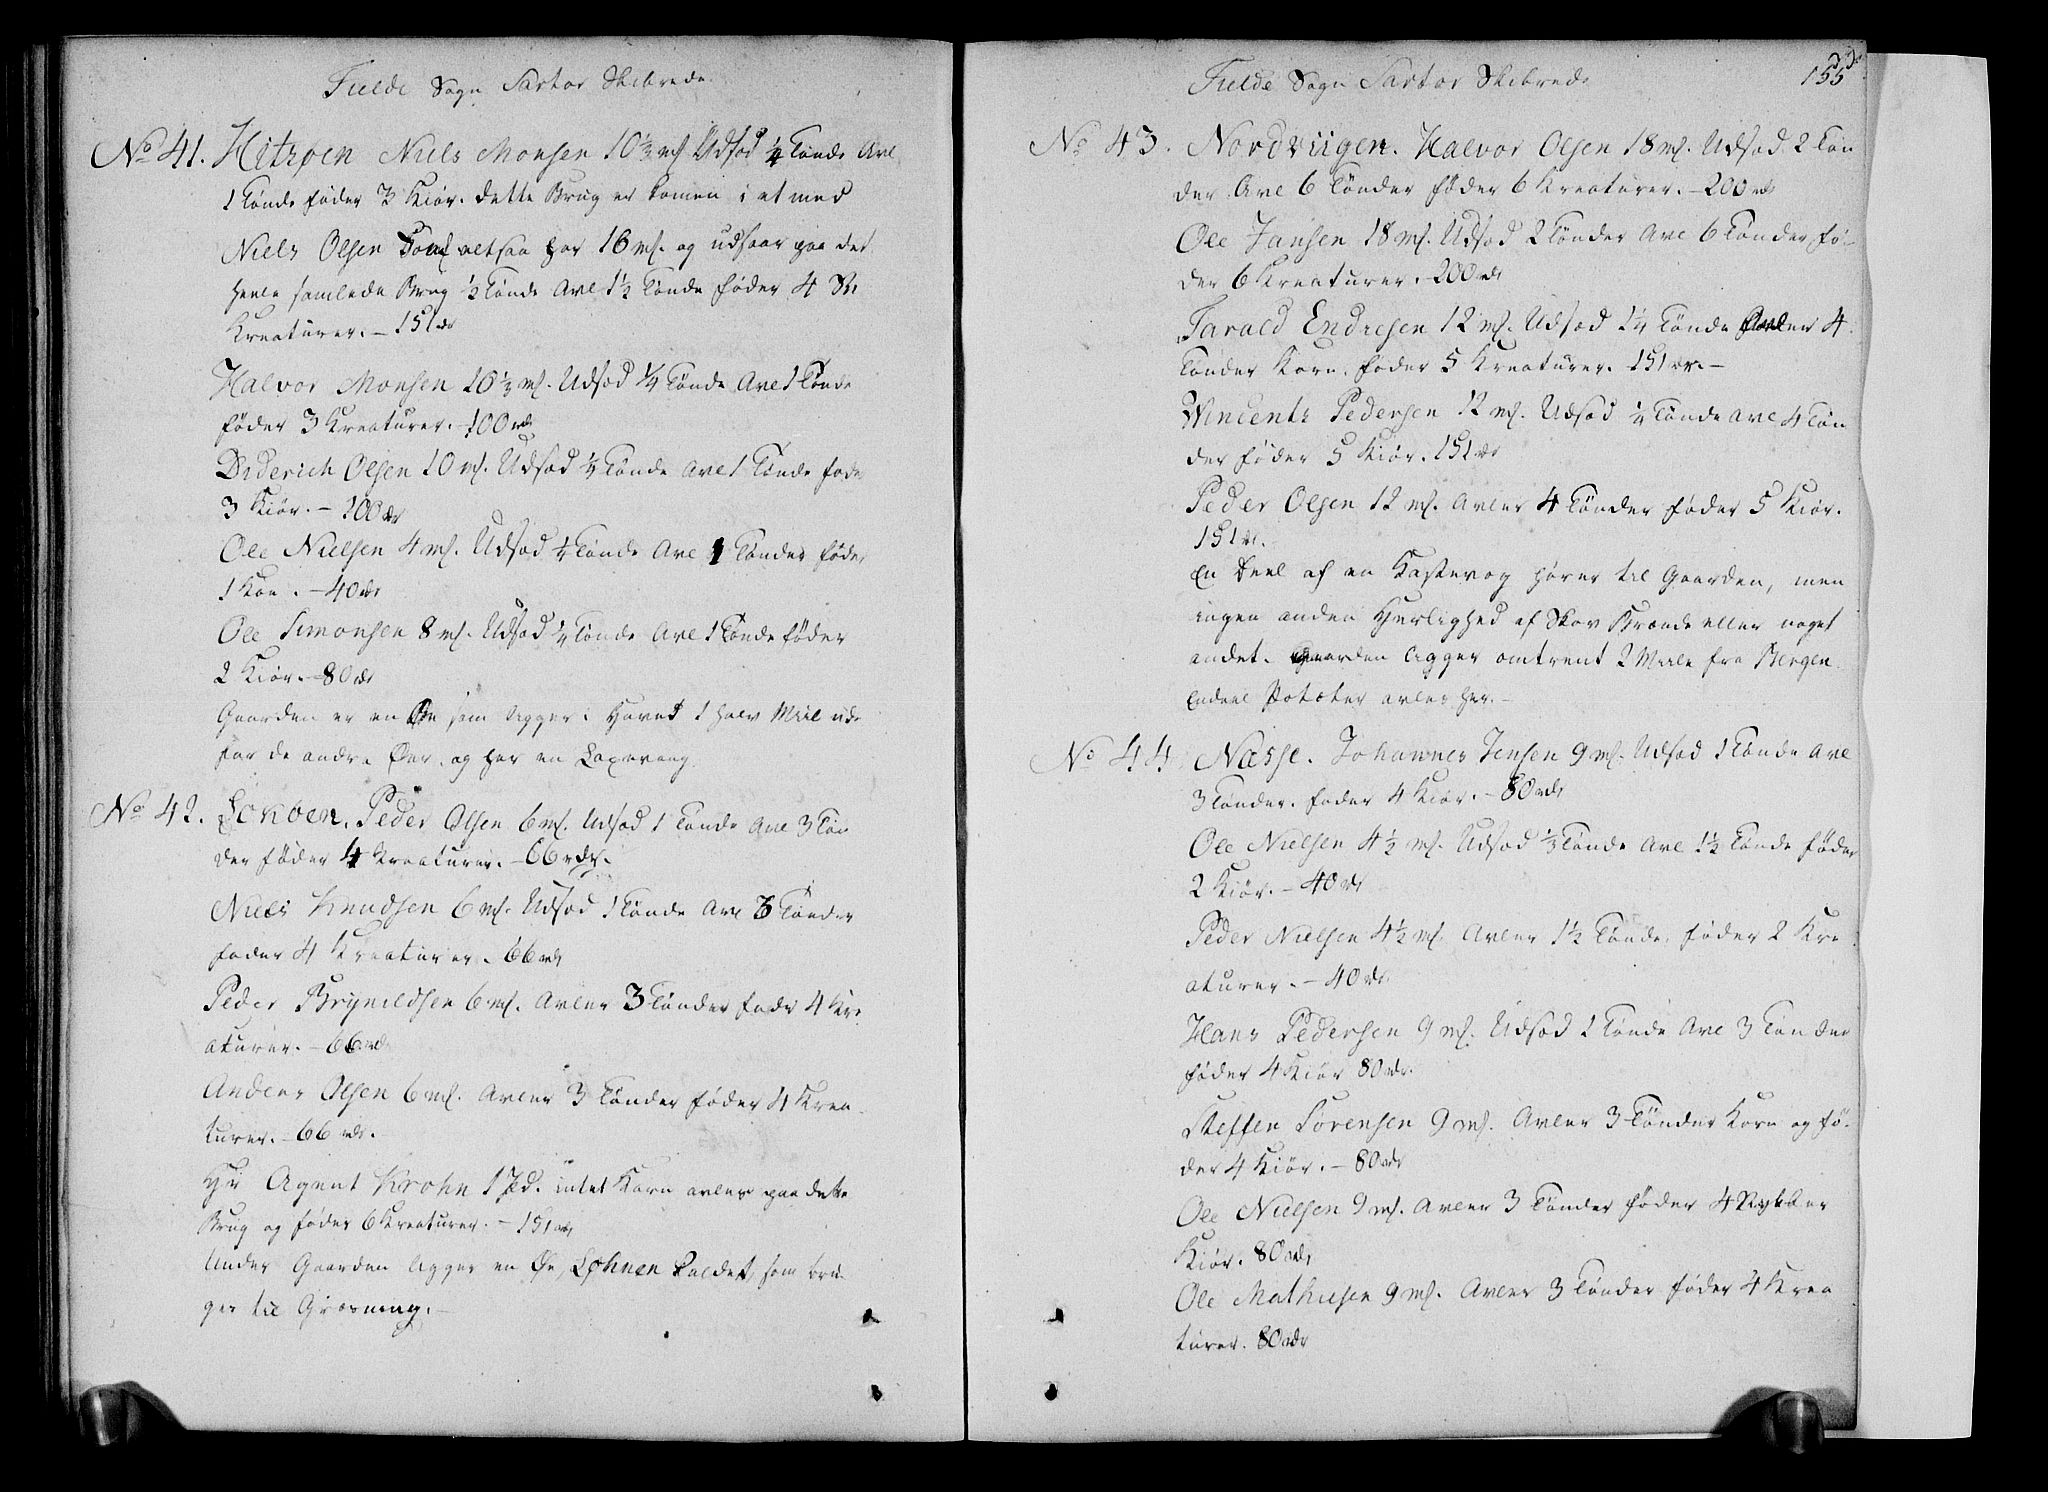 Fielde Sogn Sartor Skibrede
No 41. Hitzøen Niels Monsen 10½ mk Udsæd ¼ Tønde Avl
1 Tønde føder 3 Kiør. dette Brug er komen i et med
Niels Olsen som altsaa har 16 mk. og udsaar paa det
heele samlede Brug ½ Tønde Avl 1½ Tønde føder 4 St:
Kreaturer. – 151 rdr
Halvor Monsen 10½ mk. Udsæd ¼ Tønde Avl 1 Tønde
føder 3 Kreaturer. – 100 rdr
Diderich Olsen 10 mk. Udsæd ¼ Tønde Avl 1 Tønde føde
3 Kiør. – 100 rdr
Ole Nielsen 4 mk. Udsæd ¼ Tønde Avl 1 Tønder føder
1 Koe. – 40 rdr
Ole Simonsen 8 mk. Udsæd ¼ Tønde Avl 1 Tønde føder
2 Kiør. – 80 rdr
Gaarden er en Øe som ligger i Havet 1 halv Miil ude
for de andre Øer, og har en Laxevaag.
No 42. Lokøen. Peder Olsen 6 mk. Udsæd 1 Tønde Avl 3 Tøn
der føder 4 Kreaturer. – 66 rdr.
Niels Knudsen 6 mk. Udsæd 1 Tønde Avl 3 Tønder
føder 4 Kreaturer. 66 rdr
Peder Brynildsen 6 mk. Avler 3 Tønder fødr 4 Kre
aturer. – 66 rd
Anders Olsen 6 mk. Avler 3 Tønder føder 4 Krea
turer. – 66 rdr.
Hr Agent Krohn 1 Pd. intet Korn avler paa dette
Brug og føder 6 Kreaturer. – 151 rdr
Under Gaarden ligger en Øe, Løhnen kaldet, som bru-
ges til Græsning. –
Fielde Sogn Sartor Skibrede
155
No 43. Nordviigen. Halvor Olsen 18 mk. Udsæd 2 Tøn
der Avl 6 Tønder føder 6 Kreaturer. – 200 rdr
Ole Jansen 18 mk. Udsæd 2 Tønder Avl 6 Tønder fø-
der 6 Kreaturer. – 200 rdr
Tarald Endresen 12 mk. Udsæd 1¼ Tønde Avler 4
Tønder Korn. føder 5 Kreaturer. 151 rdr. –
Wincents Pedersen 12 mk. Udsæd ¼ Tønde Avl 4 Tøn
der føder 5 Kiør. 151 rdr
Peder Olsen 12 mk. Avler 4 Tønder føder 5 Kiør.
151 rdr.
En Deel af en Kastevog hører til Gaarden, men
ingen anden Herlighed af Skov Brænde eller noget
andet. Gaarden ligger omtrent 2 Miile fra Bergen
Endeel Potæter avles her. –
No 44 Næsse. Johannes Jensen 9 mk. Udsæd 1 Tønde Avl
3 Tønder. føder 4 Kiør. – 80 rdr
Ole Nielsen 4½ mk. Udsæd ½ Tønde Avl 1½ Tønde føder
2 Kiør. – 40 rdr
Peder Nielsen 4½ mk. Avler 1½ Tønde. føder 2 Kre
aturer. – 40 rdr
Hans Pedersen 9 mk. Udsæd 1 Tønde Avl 3 Tønder
føder 4 Kiør 80 rdr.
Steffen Sørensen 9 mk. Avler 3 Tønder Korn og fø-
der 4 Kiør. – 80 rdr
Ole Nielsen 9 mk. Avler 3 Tønder føder 4 Stykker
Kiør. 80 rdr
Ole Mathiesen 9 mk. Avler 3 Tønder føder 4 Krea
turer. 80 rdr